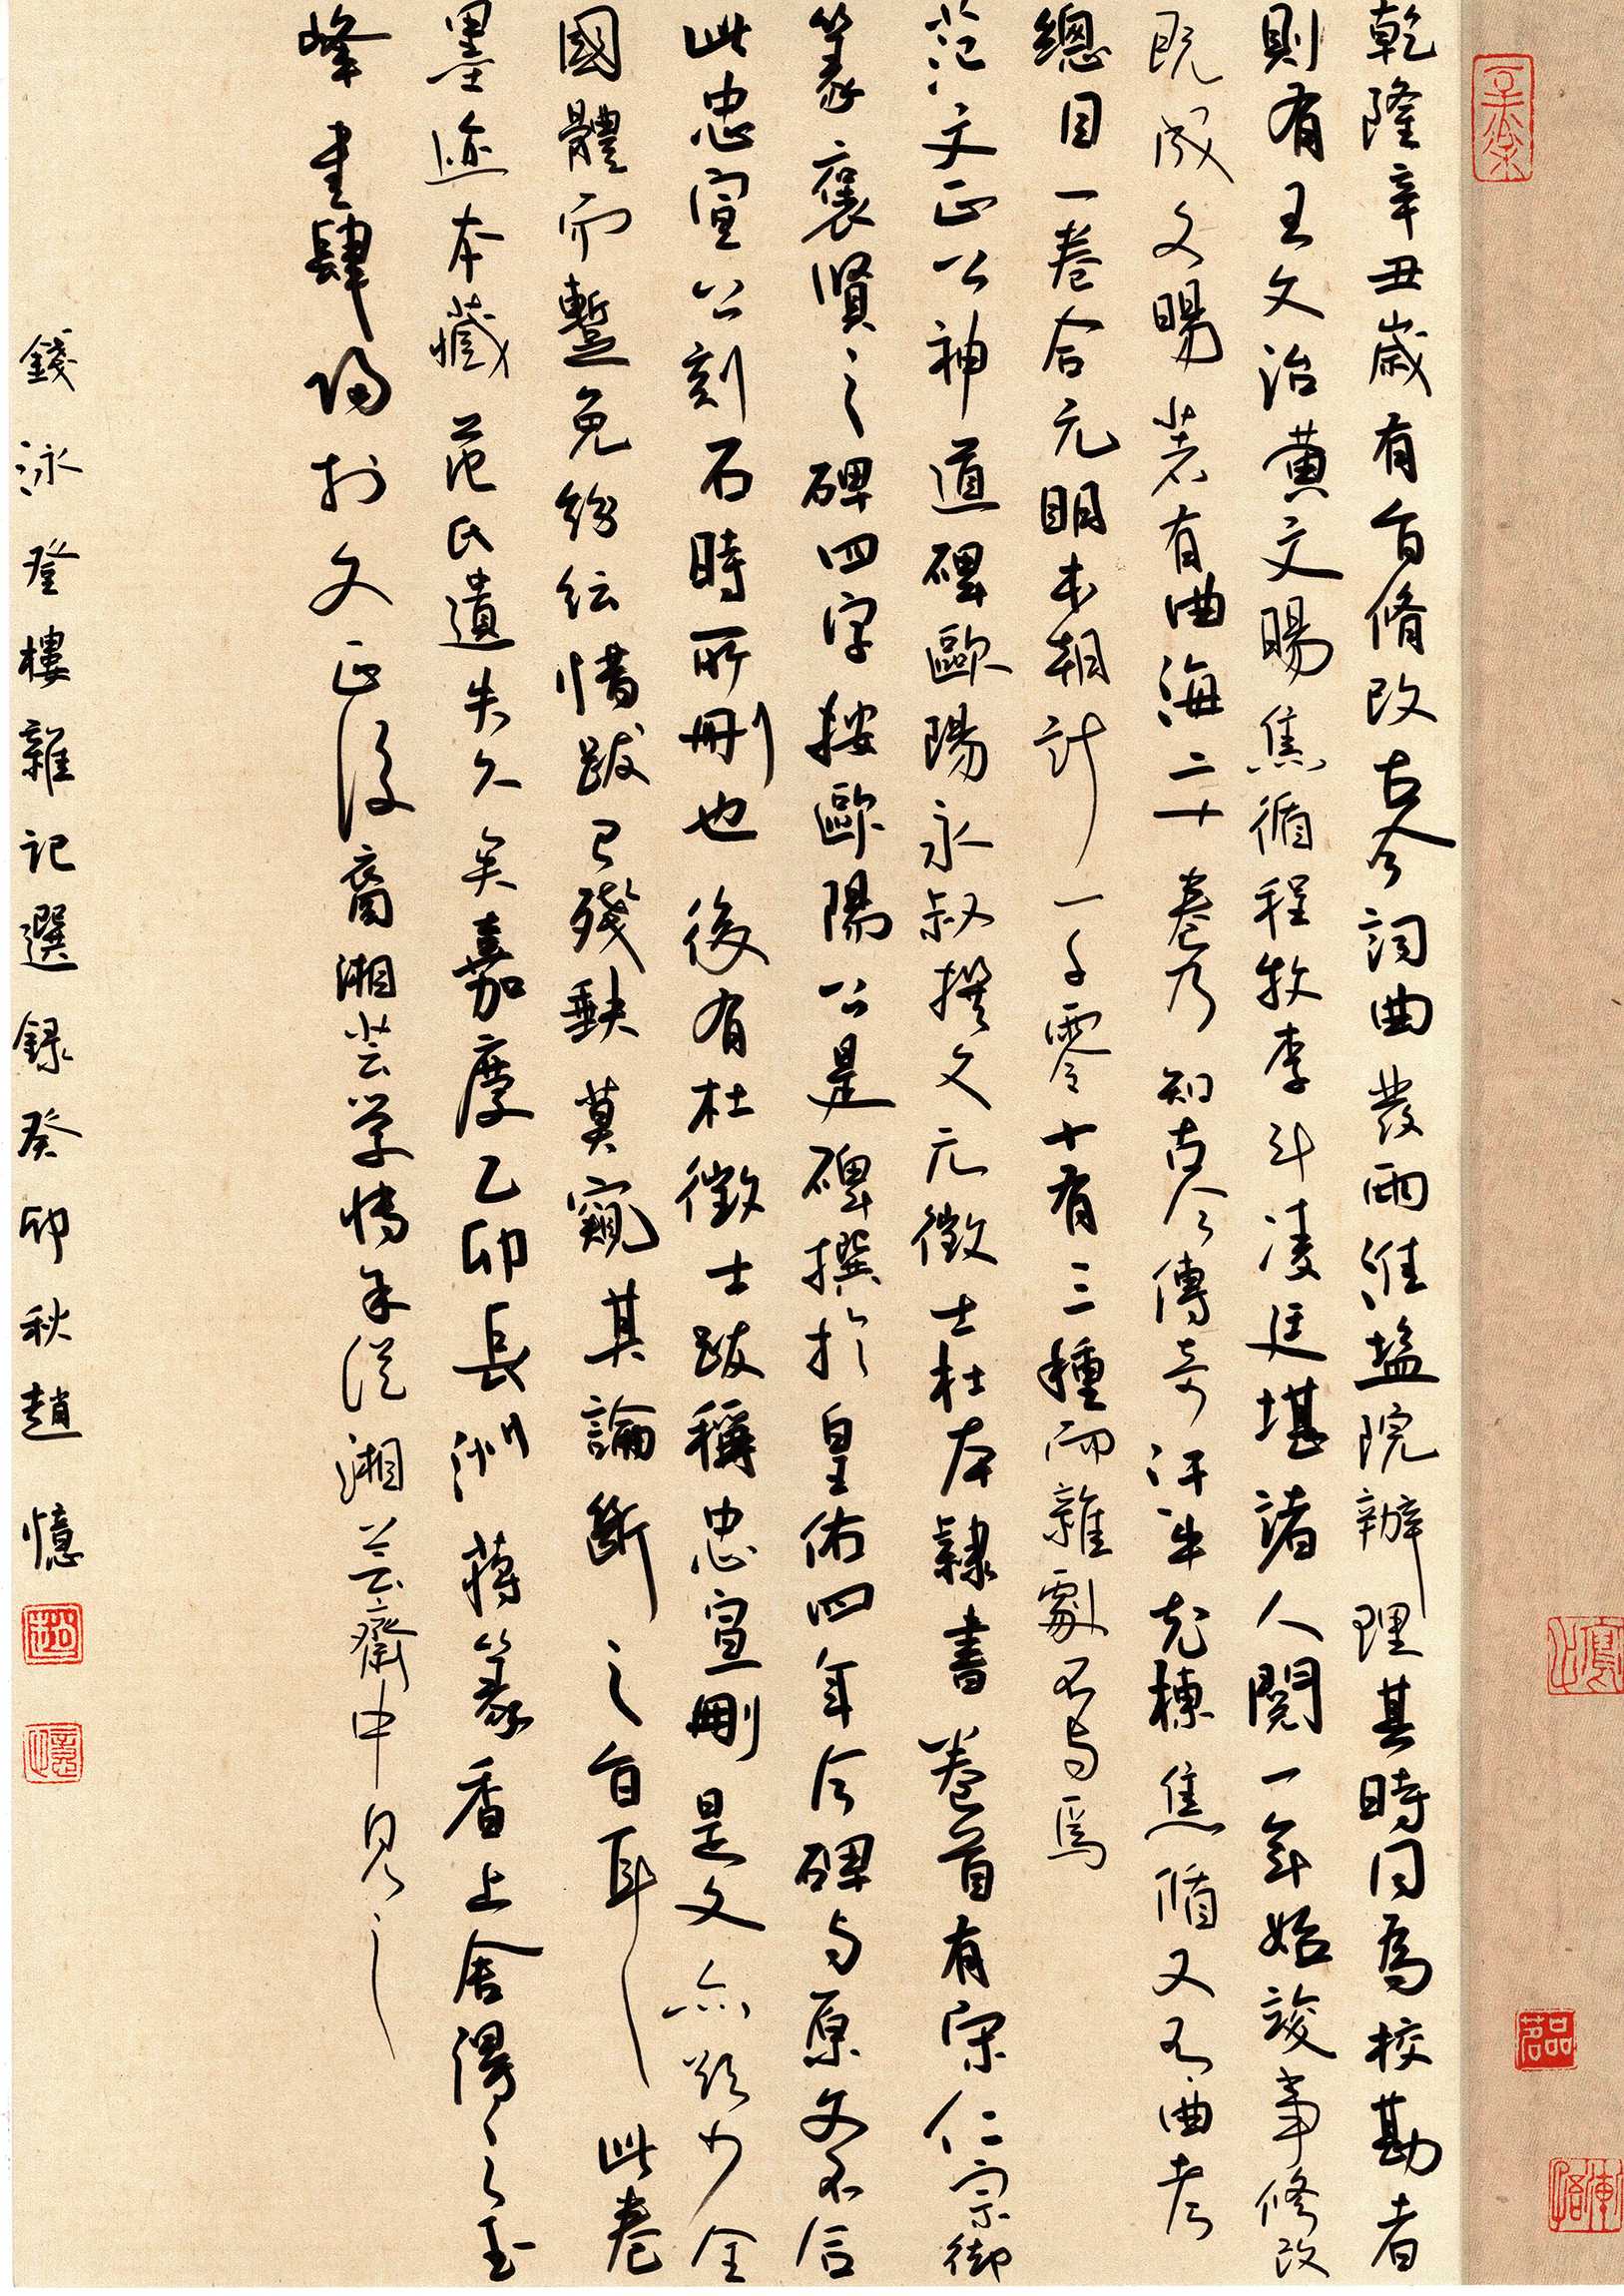 乾隆辛丑歲有旨脩改古今詞曲發兩淮塩院辦理其時同為校勘者
則有王文治黃文暘焦循程枚李斗凌廷堪諸人閱一年始竣事修改
既成文暘著有曲海二十卷乃知古今傳奇汗牛充棟焦循又有曲考
總目一卷合元明本朝計一千零十有三種而雜劇不与焉
范文正公神道碑歐陽永叔撰文元徵士杜本隸書卷首有宋仁宗御
篆褒賢之碑四字按歐陽公是碑撰於皇佑四年今碑与原文不合
此忠宣公刻石時所刪也後有杜徵士跋稱忠宣刪是文亦欲少全
國體而蹔免紛紜惜跋已殘缺莫窺其論斷之旨耳此卷
墨迹本藏范氏遺失久矣嘉慶乙卯長洲蔣篆香上舍得之玉
峰書肆歸於文正後裔湘芸學博余從湘芸齋中見之
錢泳登樓雜記選録癸卯秋趙憶
趙
憶